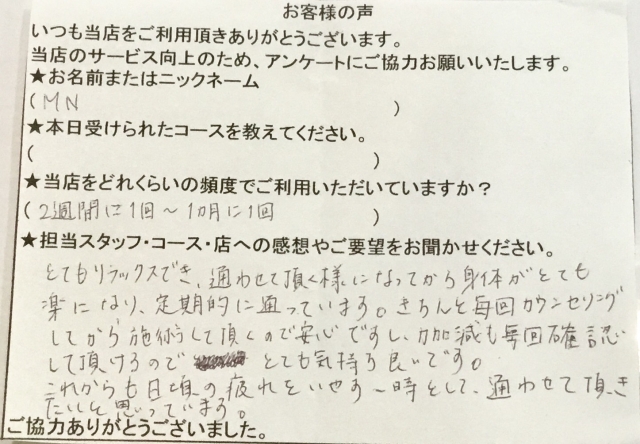 お客様の声
いつも当店をご利用頂きありがとうございます。
当店のサービス向上のため、アンケートにご協力お願いいたします。
★お名前またはニックネーム
(MN )
★本日受けられたコースを教えてください。
( )
★当店をどれくらいの頻度でご利用いただいていますか?
(2週間に1回〜1カ月に1回 )
★担当スタッフ・コース・店への感想やご要望をお聞かせください。
とてもリラックスでき、通わせて頂く様になってから身体がとても
楽になり、定期的に通っています。きちんと毎回カウンセリング
してから施術して頂くので安心ですし、力加減も毎回確認
して頂けるので とても気持ち良いです。
これからも日頃の疲れをいやす一時として、通わせて頂き
たいと思っています。
ご協力ありがとうございました。